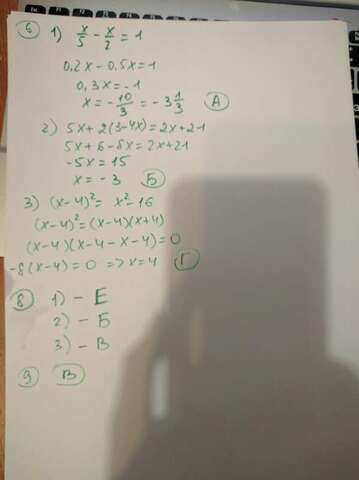 6 1) x/5 - x/2 = 1
0,2x - 0,5x = 1
0,3x = -1
x = -10/3 = -3 1/3 А
2) 5x + 2(3-4x) = 2x + 21
5x + 6 - 8x = 2x + 21
-5x = 15
x = -3 Б
3) (x-4)² = x² - 16
(x-4)² = (x-4)(x+4)
(x-4)(x-4-x-4) = 0
-8(x-4) = 0 => x = 4 Г
8 1) - Е
2) - Б
3) - В
9 В